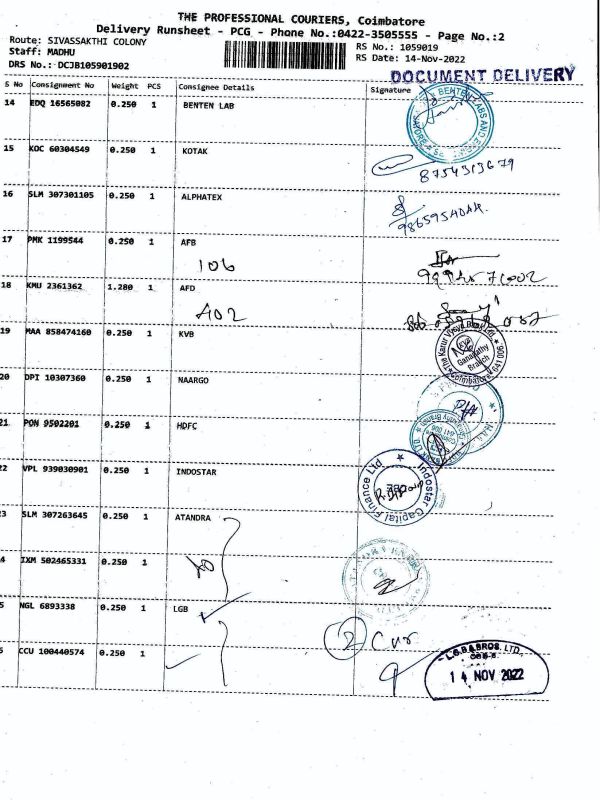 THE PROFESSIONAL COURIERS, Coimbatore
Delivery Runsheet - PCG - Phone No.:0422-3505555 - Page No.:2
Route: SIVASSAKTHI COLONY
Staff: MADHU
DRS No.: DCJB105901902
RS No.: 1059019
RS Date: 14-Nov-2022
DOCUMENT DELIVERY
S No Consignment No Weight PCS Consignee Details Signature
14 EDQ 16565082 0.250 1 BENTEN LAB
BENTEN LABS AND
15 KOC 60304549 0.250 1 KOTAK
8754313679
16 SLM 307301105 0.250 1 ALPHATEX
17 PMK 1199544 0.250 1 AFB
106
18 KMU 2361362 1.280 1 AFD
A02
19 MAA 858474160 0.250 1 KVB
The Karur Vysya Bank Ltd.
Ganapathy
Branch
Coimbatore 641 006
20 DPI 10307360 0.250 1 NAARGO
21 PON 9502201 0.250 1 HDFC
22 VPL 939030901 0.250 1 INDOSTAR
Indostar Capital Finance Ltd
23 SLM 307263645 0.250 1 ATANDRA
4 IXM 502465331 0.250 1
5 NGL 6893338 0.250 1 LGB
2
CCU 100440574 0.250 1
L.G.B & BROS. LTD.
14 NOV 2022